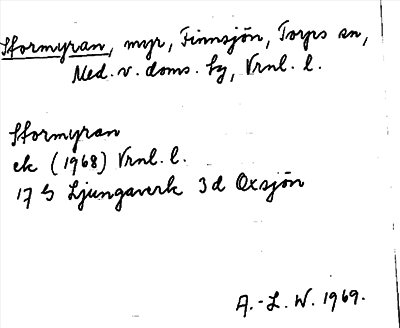 Stormyran, myr, Finnsjön, Torps sn,
Med. v. doms. fg, Vrnl. l.
Stormyran
ek (1968) Vrnl. l.
17 G Ljungaverk 3d Oxsjön
A.-L. W. 1969.